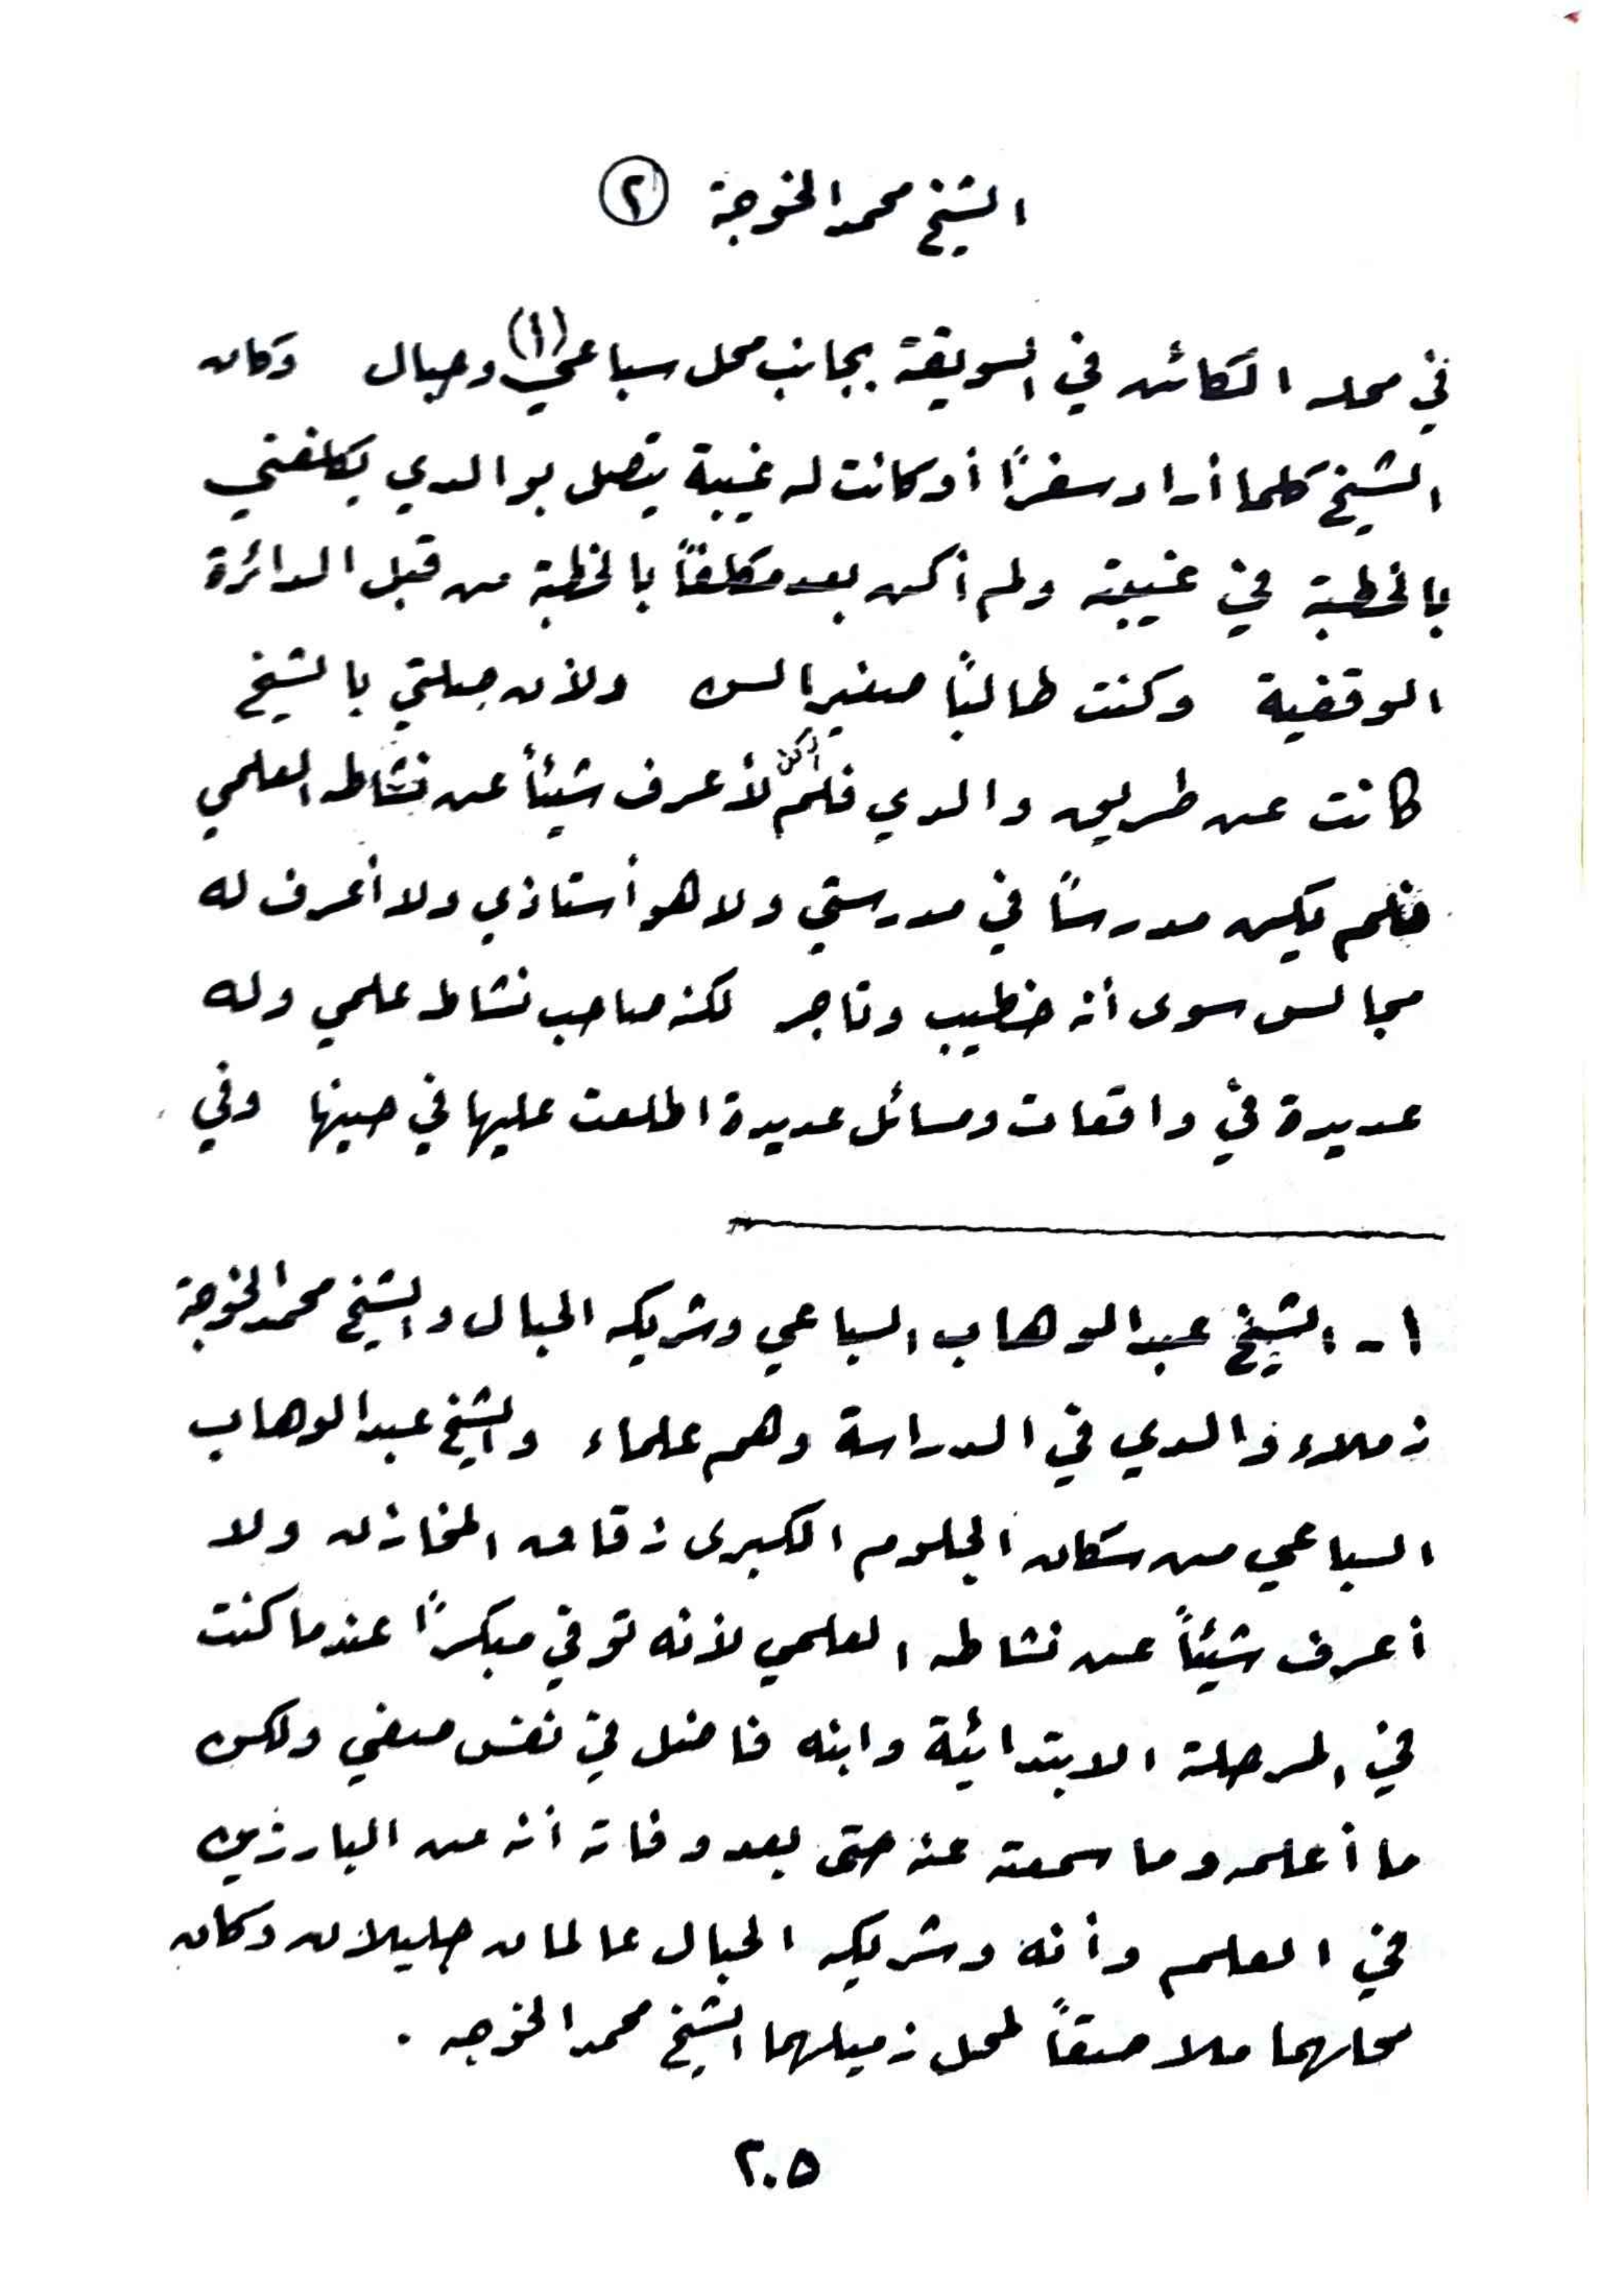 الشيخ محمد الخوجة ②
في محله الكائن في السويقة بجانب محل سباعي(١) وحبال وكان
الشيخ كلما أراد سفراً أو كانت له غيبة يتصل بوالدي يكلفني
بالخطبة في غيبته ولم أكن بعد مكلفاً بالخطبة من قبل الدائرة
الوقفية وكنت طالباً صغير السن ولأن صلتي بالشيخ
كانت عن طريق والدي فلم أكن لأعرف شيئاً عن نشاطه العلمي
فلم يكن مدرساً في مدرستي ولا هو أستاذي ولا أعرف له
مجالس سوى أنه خطيب وتاجر لكنه صاحب نشاط علمي وله
عديدة في واقعات ومسائل عديدة اطلعت عليها في حينها وفي
١- الشيخ عبد الوهاب السباعي وشريكه الحبال والشيخ محمد الخوجة
زملاء والدي في الدراسة وهم علماء والشيخ عبد الوهاب
السباعي من سكان الجلوم الكبرى زقاق المخازن ولا
أعرف شيئاً عن نشاطه العلمي لأنه توفي مبكراً عندما كنت
في المرحلة الابتدائية وابنه فاضل في نفس صفي ولكن
ما أعلمه وما سمعته عنه حتى بعد وفاته أنه من البارزين
في العلم وأنه وشريكه الحبال عالمان جليلان وكان
محلهما ملاصقاً لمحل زميلهما الشيخ محمد الخوجه .
٢٠٥